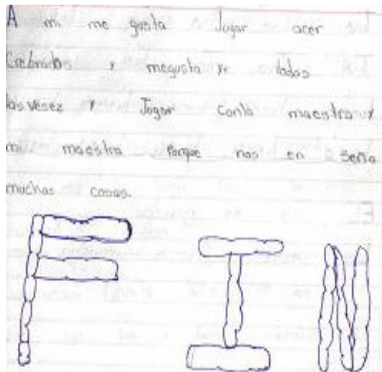 A mi me gusta Jugar acer
y megusta yr todos
las vesez y Jugar conla maestra y
mi maestra Porque nos en seña
muchas cosas.
FIN